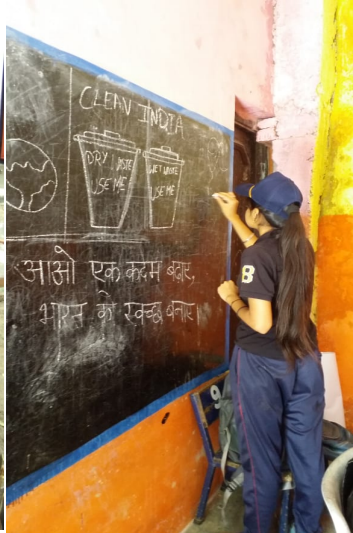 CLEAN INDIA
DRY WASTE
USE ME
WET WASTE
USE ME
आओ एक कदम बढ़ाए,
भारत को स्वच्छ बनाए
B
9